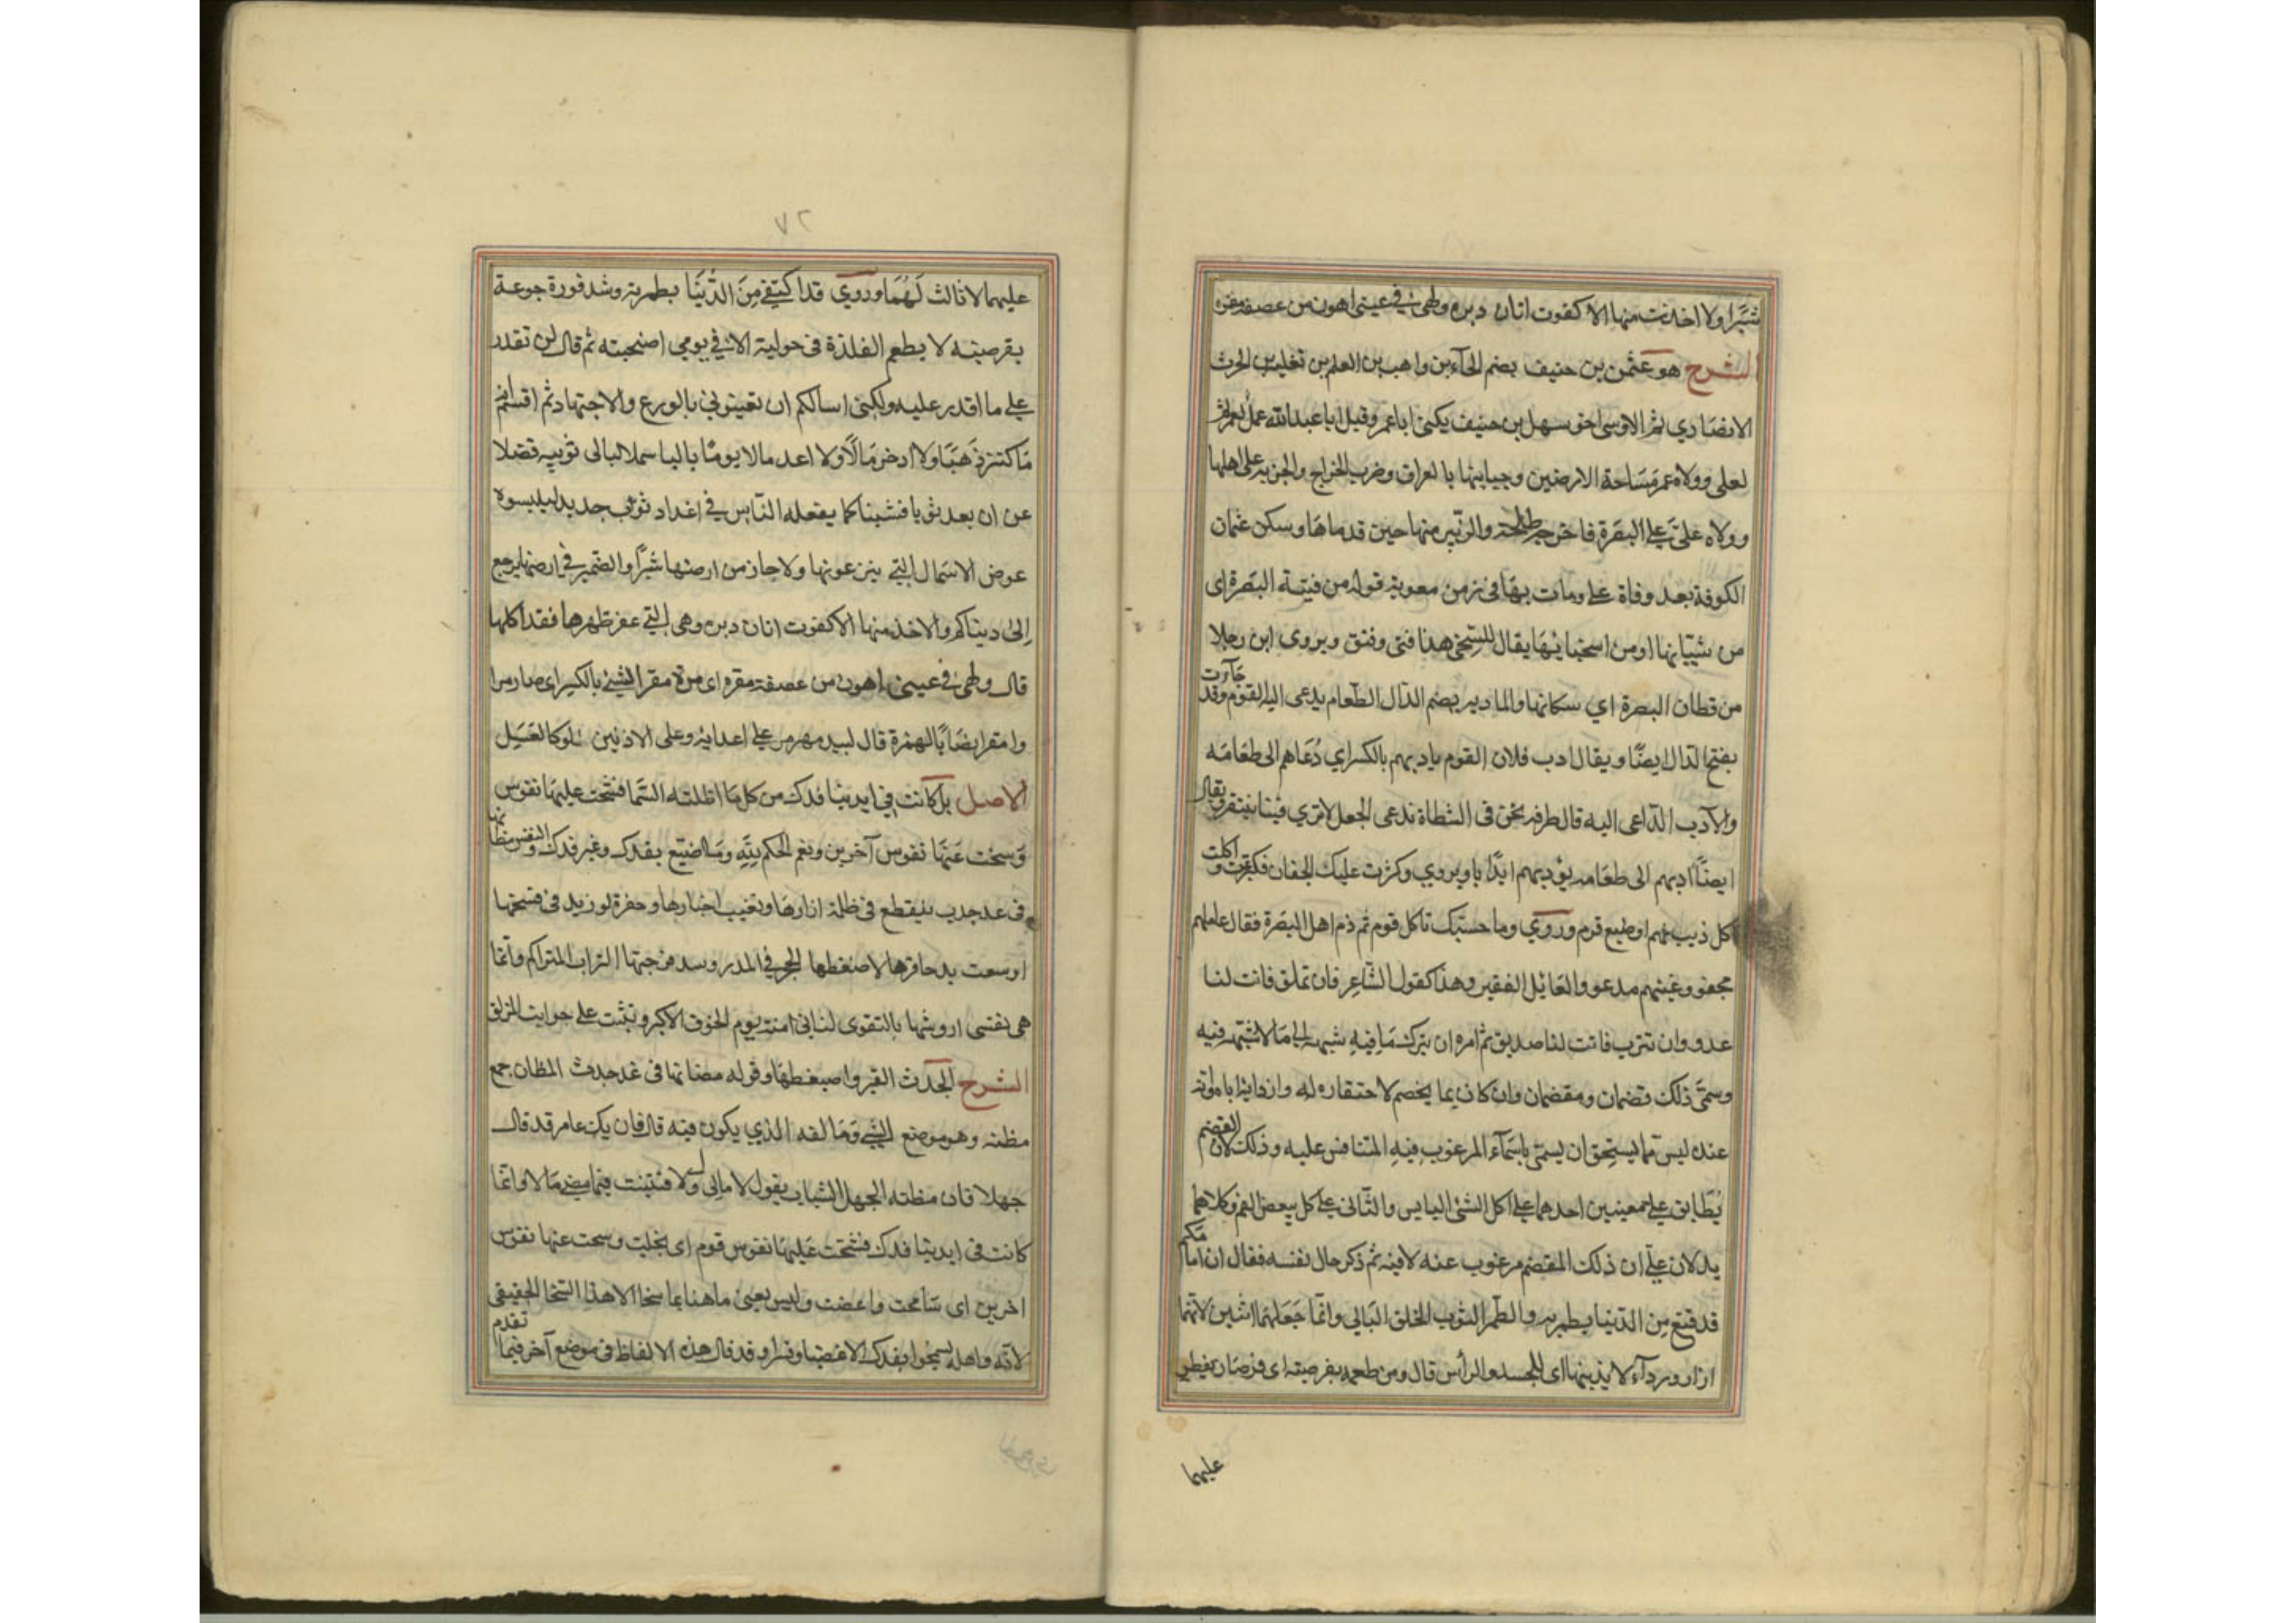 شبرا ولا اخذت منها الا كقوت اتان دبره ولهى في عينى اهون من عصفة مقره
الشرح هو عثمن بن حنيف بضم الحآء بن واهب بن العلم بن ثعلبة بن الحرث
الانصاري ثم الاوسى اخو سهل بن حنيف يكنى ابا عمر وقيل ابا عبدالله عمل لعمر ثم
لعلى وولاه عمر مساحة الارضين وجبايتها بالعراق وضرب الخراج والجزية على اهلها
وولاه علىّ علي البصرة فاخرجه طلحة والزبير منها حين قدماها وسكن عثمان
الكوفة بعد وفاة علي ومات بها فى زمن معوية قوله من فتية البصرة اى
من شبّانها او من اسخيائها يقال للسخى هذا فتى وفتو ويروى ان رجلا
من قطان البصرة اي سكانها والمادبة بضم الدال الطعام يدعى اليه القوم وقد جآءت
بفتح الدال ايضًا ويقال ادب فلان القوم يادبهم بالكسر اي دُعَاهم الى طعامه
والآدب الدّاعى اليه قال طرفة نحن فى المشطاة ندعى الجعل لا تري فينا ينتقر ويقال
ايضًا ادبهم الى طعامه يؤدبهم ايدًابا ويروي وكثرت عليك الجفان فكرعت واكلت
اكل ذيب نهم او ضبع قرم وروي وما حسبتك تاكل قوم ثم ذم اهل البصرة فقال عاملهم
مجفو وغنيهم مدعو والعايل الفقير وهذا كقول الشاعر فان تملق فانت لنا
عدو وان تترب فانت لنا صديق ثم امره ان يترك مَا فِيهِ شبهة الى مَا لا شبهة فيه
وسمّى ذلك قضمان ومقضمان وان كان يما يخصم لاحتقاره له وازدايه اياه وانه
عنده ليس مما يستحق ان يسمّى باسمآء المرغوب فيهِ المتنافس عليه وذلك لان القضم
يُطَابق علي معنيين احدهما علي اكل الشئ اليابس والثّانى علي اكل ببعض الفم وكلاهما
يدلان علي ان ذلك المقضم مرغوب عنه لا فيه ثم ذكر حال نفسه فقال ان امامكم
قد قنع مِن الدّنيا بطمريه والطمر الثوب الخلق البَالي وانمّا جَعَلهما اثنين لانّهما
ازار وردآء لا بد منها اى للجسد والرأس قال ومن طعمه بقرصيه اى قرصان يفطر
عليهما
٧٢
عليهما لا ثالث لَهُمَا وروي قد اكتفي مِنَ الدُّنيَا بطمريه وشد فورة جوعة
بقرصيه لا يطعم الفلذة فى حولية الا في يومي اضحيته ثم قال لن تقدر
علي ما اقدر عليه ولكنى اسالكم ان تعينوني بالورع والاجتهاد ثم اقسم انه
مَا كتنز ذَهَبًا ولا ادخر مَالًا ولا اعد مالا يومًا باليا سملا لبالى ثوبيه فضلا
عن ان يعد ثوبا فشبنا كما يفعله النّاس في اغداد ثوب جديد ليلبسوه
عوض الاسمال التي ينزعونها ولا حاز من ارضها شبرًا والضمير في ارضها يرجع
اِلىٰ دينا كم ولا اخذ منها الا كقوت اتان دبره وهى التي عقر ظهرها فقد اكلها
قال ولهى في عينى اهون من عصفة مقره اى مرة مقر الشئ بالكسر اى صار مرا
وامقر ايضًا بالهمزة قال لبيد ممقر مر علي اعدايه وعلى الادنين حلو كالعسل
الاصل بل كانت في ايدينا فدك من كل مَا اظلته السّما فشحت عليها نفوس
وَسخت عنها نفوس آخرين ونعم الحكم لِلّٰهِ ومَا اصنع بفدك وغير فدك والنفس مظانها
فى غد جدث ينقطع فى ظلة اثارها وتغيب اخبارها وحفرة لو زيد فى فسحتها
اوسعت يد حافرها لاضغطها الحجر والمدر وسد فرجتها التراب المتراكم وانّما
هى نفسى اروضها بالتقوى لتاتى امنة يوم الخوف الاكبر وتثبت على جوانب المزلق
الشرح الجدث القبر واضغطها وقوله مضانها فى غد جدث المظان جمع
مظنه وهو موضع الشي ومَا لفه الذي يكون فيه قال فان يك عامر قد قال
جهلا فان مظنه الجهل الشباب يقول لا مالى ولا فتينت فيما مضى مَا لا وانّما
كانت فى ايدينا فدك فشحت عَليها نفوس قوم اى بخلت وسخت عنها نفوس
اخرين اى سَامحت واغضت وليس يعنى ماهنا بما سخا الا هذا السّخا الحقيقى
لانّه واهله لم يسخوا بفدك الا غصبا وقسرا وقد قال هذه الالفاظ فى موضع آخر فيما تقدم